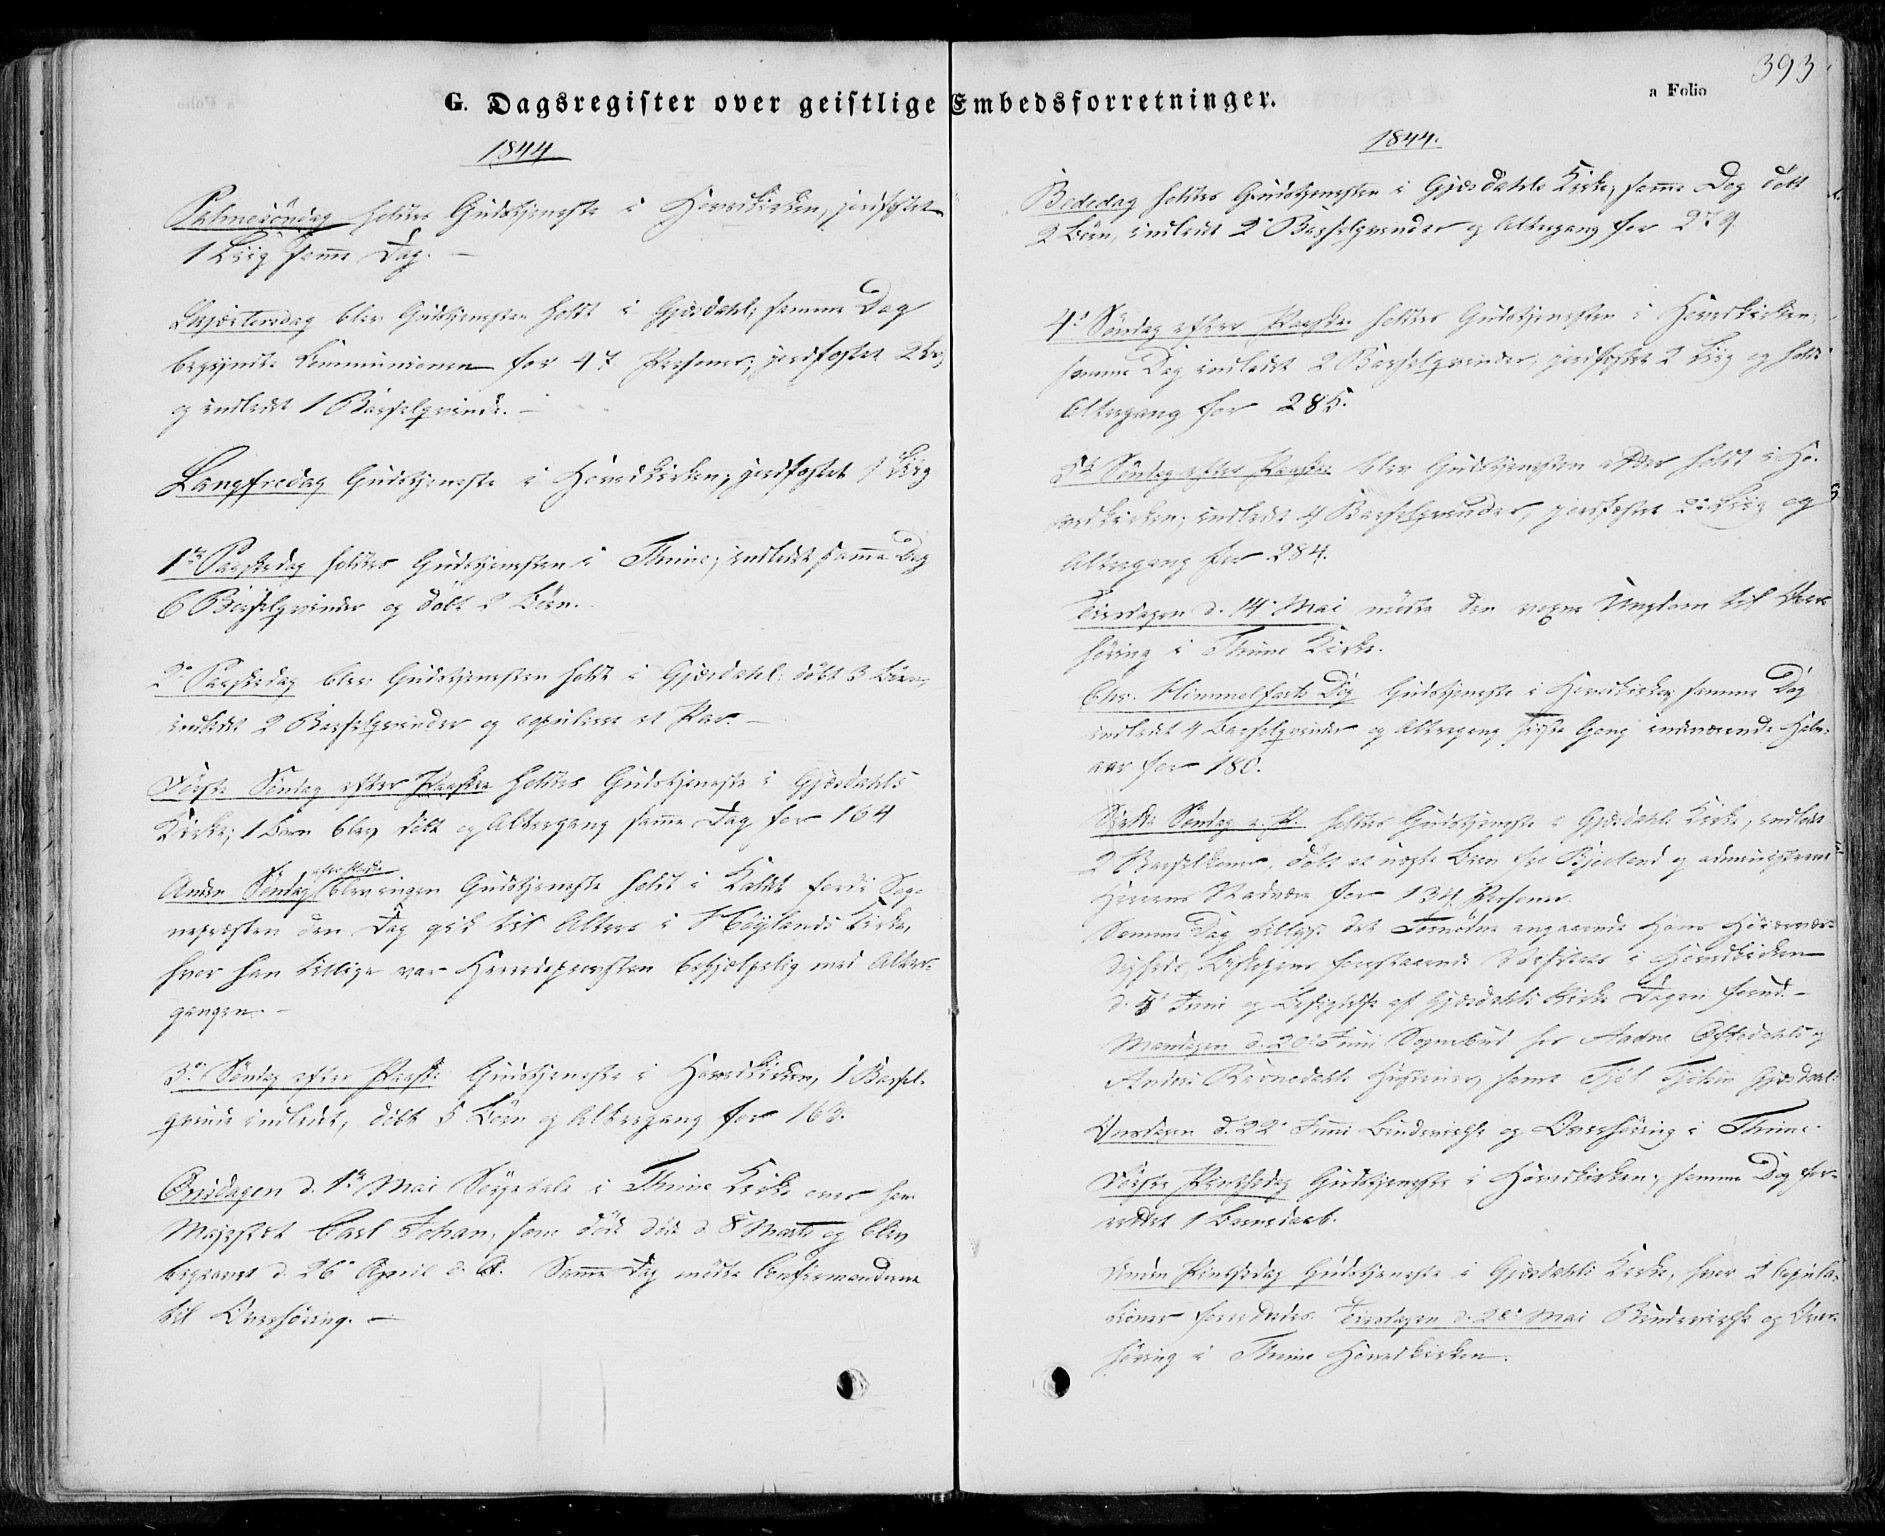 393
a Folio
G. Dagsregister over geistlige Embedsforretninger.
1844
Palmesöndag holdtes Gudstjeneste i Hovedkirken, jordfæstet
1 Liig samme Dag. –
Skjærtorsdag blev Gudstjenesten holdt i Gjæsdahl; samme Dag
begyndte Communionen for 47 Personer; jordfæstet 2 Liig
og indledet 1 Barselqvinde. –
Langfredag Gudstjeneste i Hovedkirken, jordfæstet 1 Liig
1ste Paaskedag holdtes Gudstjenesten i Thime; indledet samme Dag
6 Barselqvinder og döbt 2 Börn.
2den Paaskedag blev Gudstjenesten holdt i Gjæsdahl, döbt 3 Börn,
indledt 2 Barselqvinder og copuleret et Par. –
Förste Söndag efter Paaske holdtes Gudstjeneste i Gjæsdahls
Kirke; 1 Barn blev döbt og Altergang samme Dag for 164
Anden Söndag efter Paaske blev ingen Gudstjeneste holdt i Kaldet fordi Sog-
nepræsten den Dag gik til Alters i Höylands Kirke,
hvor han tillige var Herredsprovsten behjælpelig med Alter-
gangen. –
3die Söndag efter Paaske Gudstjeneste i Hovedkirken, 1 Barsel-
qvinde indledet, döbt 5 Börn og Altergang for 163.
Onsdagen d. 1ste Mai Sörgetale i Thime Kirke over hans
Majestæt Carl Johan, som döde d. 8 Marts og blev
begravet d. 26de April d. A. Samme Dag mödte Confirmanderne
til Overhöring. –
1844.
Bededag holdtes Gudstjenesten i Gjæsdahls Kirke, samme Dag döbt
2 Börn, indledet 2 Barselqvinder og Altergang for 279.
4de Söndag efter Paaske holdtes Gudstjenesten i Hovedkirken;
samme Dag indledet 2 Barselqvinder, jordfæstet 2 Liig og holdt
Altergang for 285.
5te Söndag efter Paaske blev Gudstjenesten atter holdt i Ho-
vedkirken; indledet 4 Barselqvinder, jordfæstet 2 Liig og
Altergang for 284.
Tirsdagen d. 14de Mai mödte den voxne Ungdom til Over-
höring i Thime Kirke.
Chr. Himmelfarts Dag Gudstjeneste i Hovedkirken; samme Dag
indledet 4 Barselqvinder og Altergang sidste Gang indeværende Halv-
aar for 180.
Sjette Söndag e. P. holdtes Gudstjeneste i Gjæsdahls Kirke, indledet
2 Barselkoner, döbt et Barn fra Bjerland og administreret
Herrens Nadvere for 134 Personer.
Samme Dag det Fornödne angaaende Hans Höiærvær-
digheds Biskopens forestaaende Visitats i Hovedkirken
d. 5 Juni og Besigtelse af Gjæsdahls Kirke Dagen forud. –
Mandagen d. 20de Juni Sognebud hos Aadne Oftedahls og
Gjæsdal
Onsdagen d. 22de Juni og Overhöring i Thime.
Förste Pintsedag Gudstjeneste i Hovedkirken; samme Dag for-
rettet 1 Barnedaab.
Anden Pintsedag Gudstjeneste i Gjæsdahls Kirke, hvor 2 Copula-
tioner forrettedes. Tirsdagen d. 28de Mai og Over-
höring i Thime Hovedkirken.